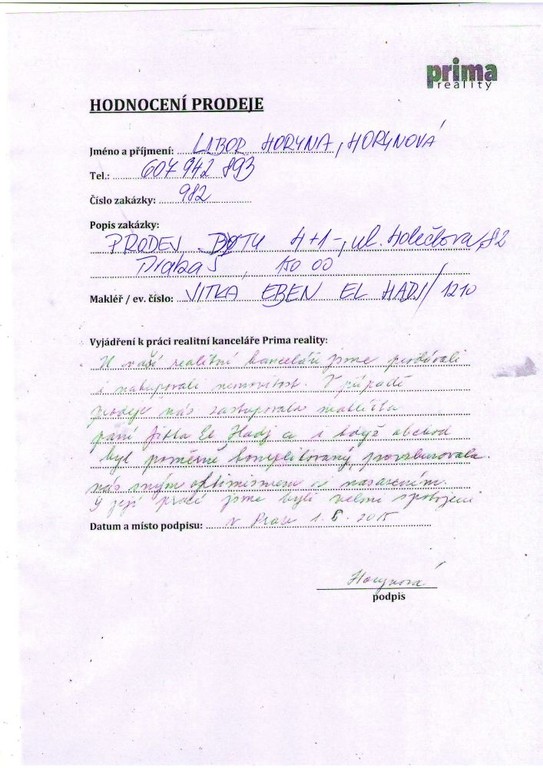 prima
reality
HODNOCENÍ PRODEJE
Jméno a příjmení: LIBOR HORYNA, HORYNOVÁ
Tel.: 607 942 893
Číslo zakázky: 982
Popis zakázky:
PRODEJ BYTU 4+1, ul. Holečkova, 82
Praha 5, 150 00
Makléř / ev. číslo: JITKA EBEN EL HADJ / 1210
Vyjádření k práci realitní kanceláře Prima reality:
U vaší realitní kanceláře jsme prodávali
i nakupovali nemovitost. V případě
prodeje nás zastupovala makléřka
paní Jitka El Hadj a i když obchod
byl poměrně komplikovaný povzbuzovala
nás svým optimismem a nasazením.
S její prací jsme byli velmi spokojeni
Datum a místo podpisu: V Praze 1. 2015
Horynová
podpis